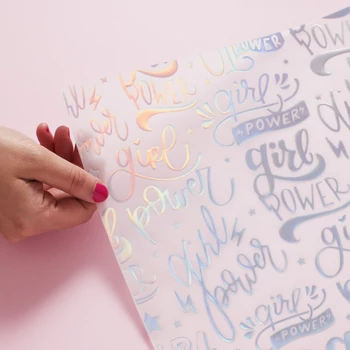 POWER
POWER
girl
POWER
girl
power
girl
POWER
power
girl
POWER
girl
power
girl
POWER